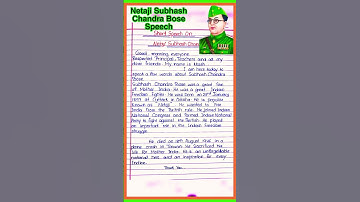 Netaji Subhash
Chandra Bose
Speech
Short Speech On
Netaji Subhash Chan
Good morning everyone
Respected Principal, Teachers and all my
dear friends. My name is
I am here today to
speak a few words about Subhash Chandra
Bose.
Subhash Chandra Bose was a great son
of Mother India. He was a great Indian
freedom fighter. He was born on 23rd January
1897 at Cuttack in Odisha. He is popularly
known as Netaji. He wanted to free
India from the British rule. He joined Indian
National Congress and formed Indian National
Army to fight against the British. He played
an important role in the Indian freedom
struggle.
He died on 18th August 1945 in a
plane crash in Taiwan. He sacrificed his
life for Mother India. He is an unforgettable
national hero and an inspiration for every
Indian.
Thank You